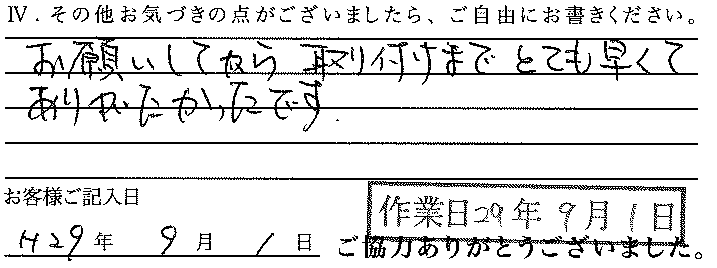 Ⅳ．その他お気づきの点がございましたら、ご自由にお書きください。
お願いしてから取り付けまでとても早くて
ありがたかったです.
お客様ご記入日
作業日29年9月1日
H29年9月1日
ご協力ありがとうございました。